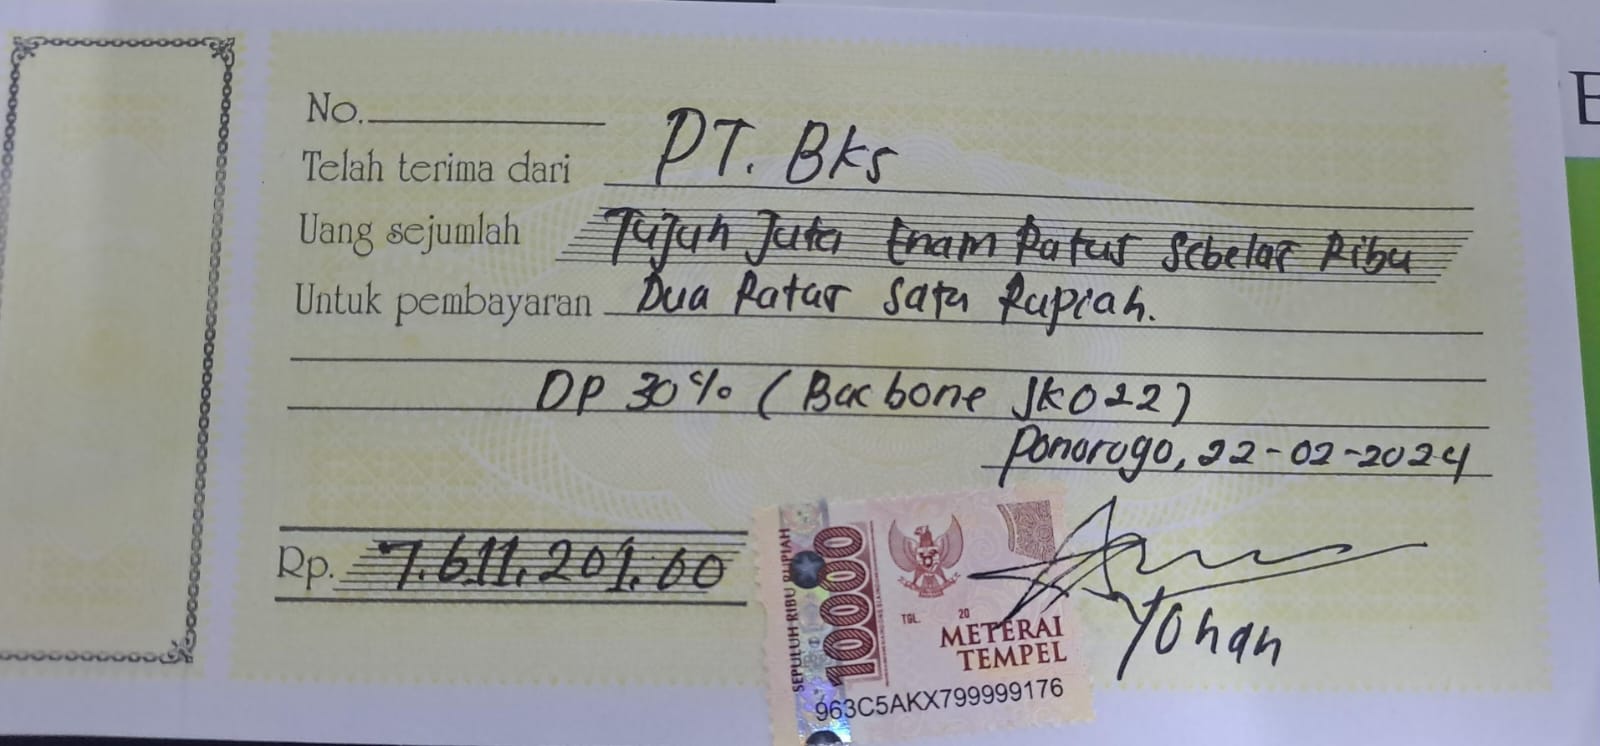 No.
Telah terima dari PT. Bks
Uang sejumlah Tujuh Juta Enam Ratus Sebelas Ribu
Untuk pembayaran Dua Ratus Satu Rupiah.
DP 30% (Bacbone JK022)
Ponorogo, 22-02-2024
Rp. 7.611.201.60
SEPULUH RIBU RUPIAH
10000
TGL. 20
METERAI
TEMPEL
963C5AKX799999176
Yohan
E